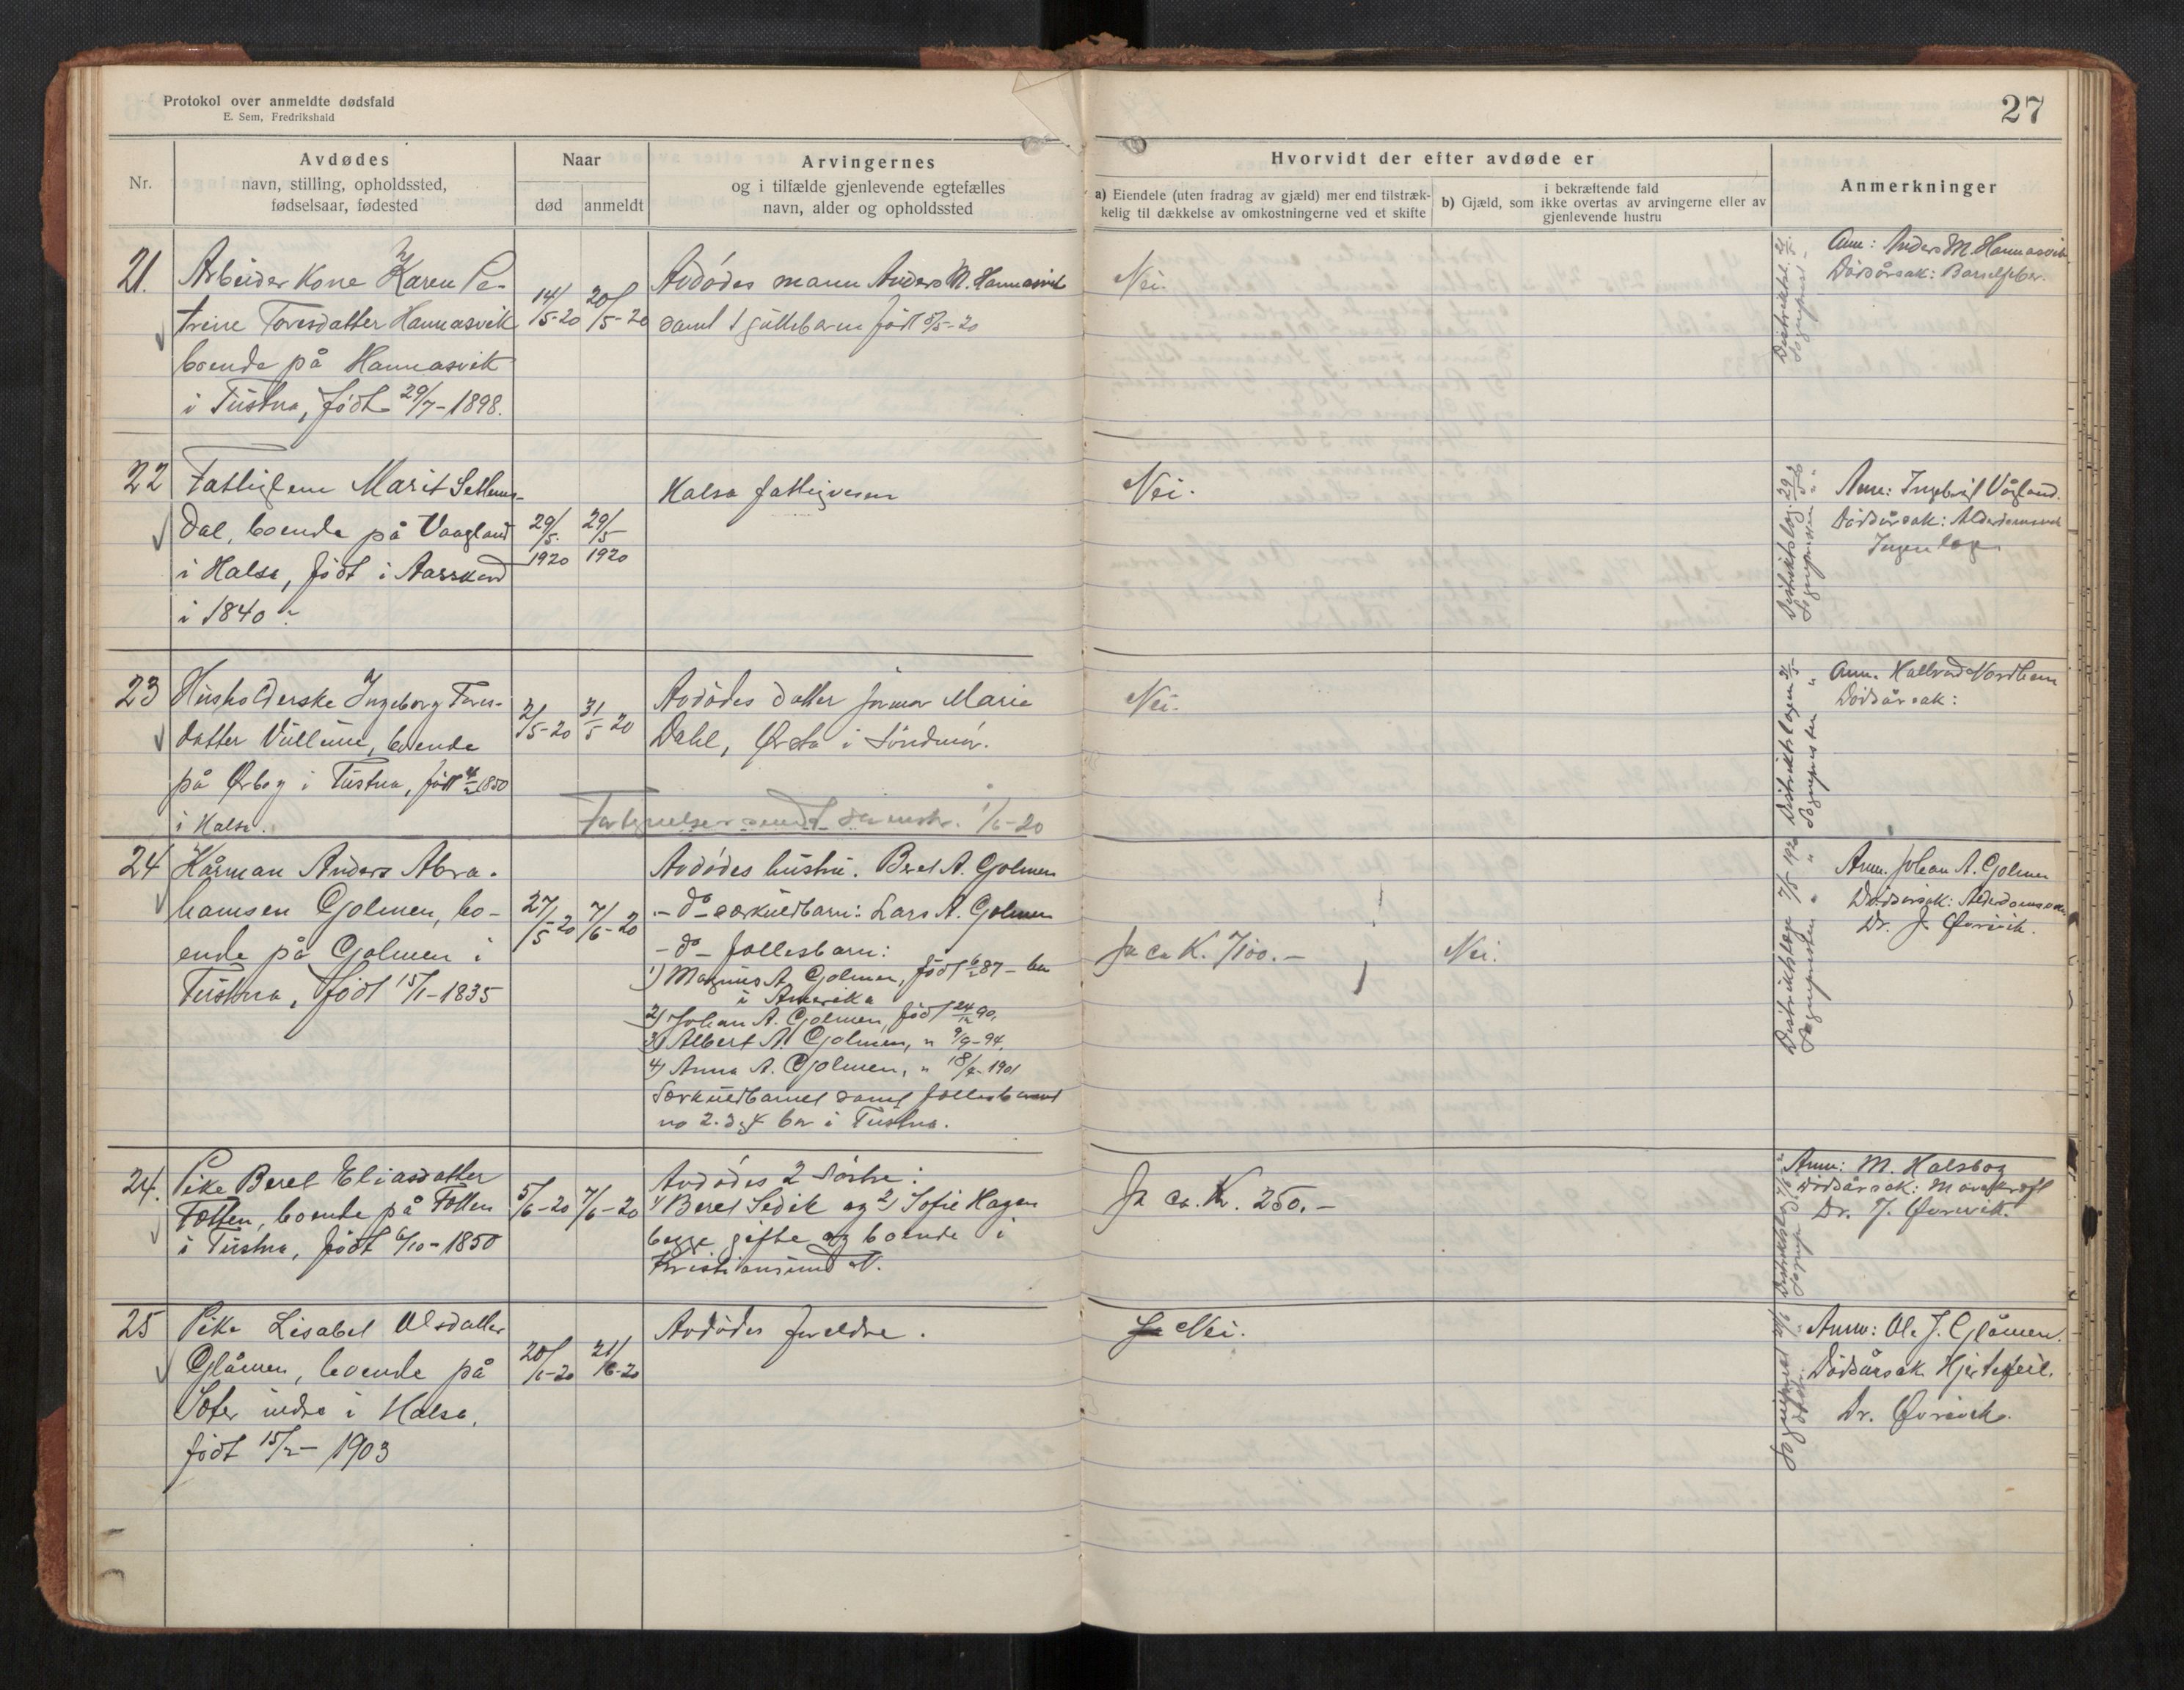 Protokol over anmeldte dødsfald
E. Sem, Fredrikshald
27
Nr.
Avdødes
navn, stilling, opholdssted,
fødselsaar, fødested
Naar
død
anmeldt
Arvingernes
og i tilfælde gjenlevende egtefælles
navn, alder og opholdssted
Hvorvidt der efter avdøde er
a) Eiendele (uten fradrag av gjæld) mer end tilstræk-
kelig til dækkelse av omkostningerne ved et skifte
i bekræftende fald
b) Gjæld, som ikke overtas av arvingerne eller av
gjenlevende hustru
Anmerkninger
21.
Arbeider Kone Karen Pe-
trine Toresdatter Hannasvik
boende på Hannasvik
i Tustna, födt 29/7-1898.
14/5-20
20/5-20
Avdödes mann Anders M. Hannasvik
samt 1 guttebarn födt 5/5-20
Nei.
Anm: Anders M. Hannasvik
Dödsårsak: Barselfeber.
22
Fattiglem Marit Settems-
dal, boende på Vaagland
i Halsa, födt i Aasskard
i 1840
29/5.
1920
29/5
1920
Halsa fattigvesen
Nei.
Anm: Ingebrigt Vågland.
Dödsårsak: Alderdomssvak
Ingen læge
23
Husholderske Ingeborg Tores-
datter Vullum, boende
på Ørbog i Tustna, födt 1850
i Halsa.
21/5-20
31/5 20
Avdödes datter jormor Marie
Dahl, Ørsta i Söndmör.
1/6-20
Nei.
Anm. Hallvard Nordheim
Dödsårsak:
24
Kårman Anders Abra-
hamsen Golmen, bo-
ende på Golmen i
Tustna, födt 15/1-1835
27/5-20
7/6-20
Avdödes hustru. Beret A. Golmen
- do - særkuldbarn: Lars A. Golmen
- do - fællesbarn:
1) Magnus A. Golmen, födt 87 - bor
i Amerika
2) Johan A. Golmen, födt 24/12 90.
3) Albert A. Golmen, " 9/9-94.
4) Anna A. Golmen, " 1901
Særkuldbarnet samt fællesbarnet
no 2. 3 og 4 bor i Tustna.
Ja ca K. 7100.-
Nei.
Anm. Johan A. Golmen
Dödsårsak: Alderdomssvak
Dr. J. Øvrevik.
24.
Pike Beret Eliasdatter
Tötten, boende på Tötten
i Tustna, födt 6/10-1850
5/6-20
7/6-20
Avdödes 2 söstre:
1) Beret Sedik og 2) Sofie Hagen
begge gifte og boende i
Kristiansund N.
Ja ca. Kr. 250.-
Anm: M. Halsbog
Dödsårsak: Mavekræft
Dr. J. Øvrevik.
25
Pike Lisabet Olsdatter
Glåmen, boende på
Sæter indre i Halsa,
födt 15/2-1903
20/6-20
21/6-20
Avdödes foreldre.
Ja Nei.
Anm: Ole J. Glåmen.
Dödsårsak Hjertefeil.
Dr. Øvrevik.